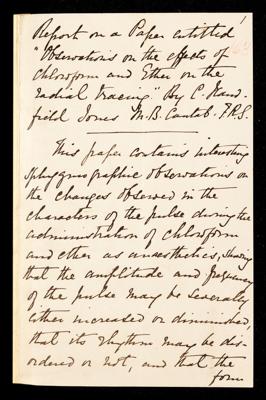 Report on a Paper entitled
"Observations on the effects of
Chloroform and Ether on the
radial tracing." By C. Hand-
field Jones M.B. Cantab. F.R.S.
This paper contains interesting
sphygmographic observations on
the changes observed in the
characters of the pulse during the
administration of chloroform
and ether as anaesthetics, showing
that the amplitude and frequency
of the pulse may be severally
either increased or diminished,
that its rhythm may be dis-
ordered or not, and that the
form